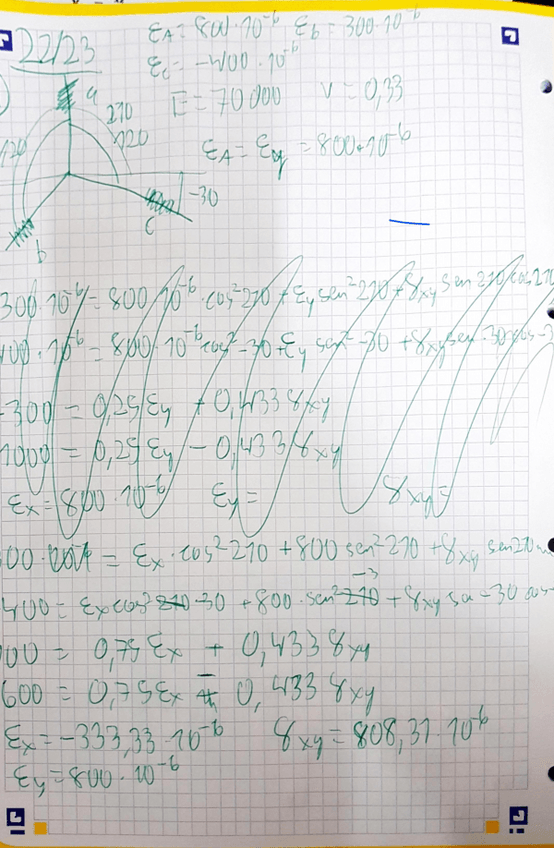 22/23
εA = 800·10⁻⁶ εb = 300·10⁻⁶
εc = -400·10⁻⁶
E = 70000 ν = 0,33
a
210
120
120
εA = εy = 800·10⁻⁶
-30
c
b
300·10⁻⁶ = 800·10⁻⁶·cos²210 + εy sen²210 + γxy sen 210 cos 210
400·10⁻⁶ = 800·10⁻⁶ cos²-30 + εy sen²-30 + γxy sen-30 cos-3
-300 = 0,25 εy + 0,433 γxy
1000 = 0,25 εy - 0,433 γxy
εx = 800·10⁻⁶ εy = γxy =
00· = εx·cos²210 + 800 sen²210 + γxy sen210
400 = εx cos² -30 + 800·sen² -3 + γxy sen -30 cos-
00 = 0,75 εx + 0,433 γxy
600 = 0,75 εx - 0,433 γxy
εx = -333,33·10⁻⁶ γxy = 808,31·10⁻⁶
εy = 800·10⁻⁶